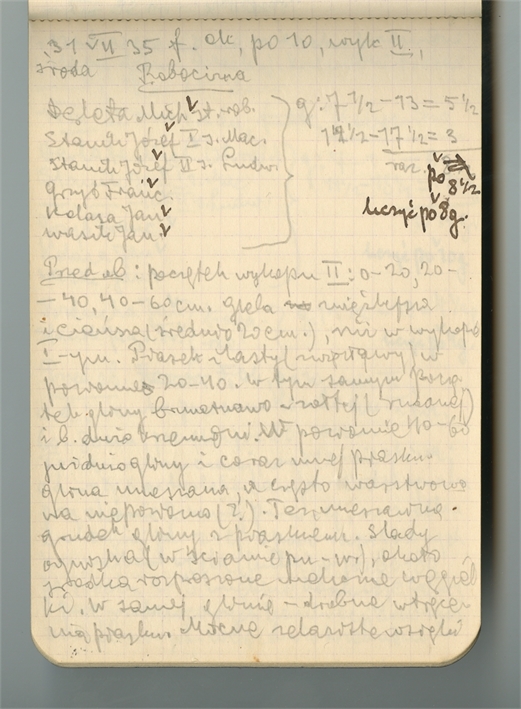 31 VII 35 f. ok, po 10, wyk II.,
środa Robocizna
Deleta Mich. st. rob.
Stanik Józef I s. Mac.
Stanik Józef II s. Ludw.
Grzyb Franc.
Kolasa Jan
Wasik Jan
g: 7 1/2 – 13 = 5 1/2
14 1/2 – 17 1/2 = 3
raz.
po 8 1/2
liczyć po 8 g.
Przed ob: początek wykopu II: 0–20, 20–
–40, 40–60 cm. gleba
i cieńsza (średnio 20 cm.), niż w wykopie
I-ym. Piasek ilasty w
poziomie 20–40. W tym samym pozio
gliny brunatnawo – żółtej
i b. dużo krzemieni. W poziomie 40–60
już dużo gliny i coraz mniej piasku.
glina mieszana, a często warstwowa
na niżej poziomu (?). Też mieszanina
grudek gliny z piaskiem. Ślady
ogniska (w ścianie pn–w.), około
środka rozproszone maleńkie węgiel
ki. W samej glinie – drobne wtręce
nia piasku. Mocne zelaziste